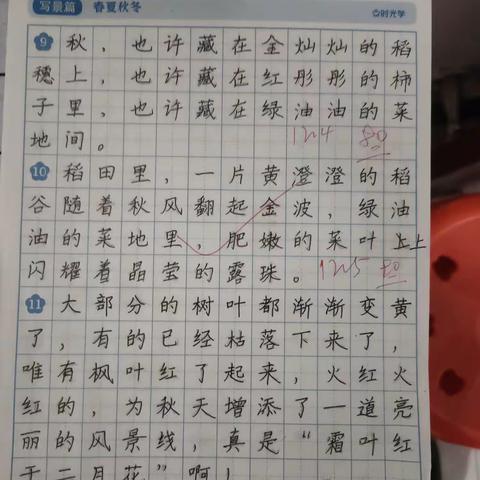 写景篇 春夏秋冬 时光学
9 秋，也许藏在金灿灿的稻
穗上，也许藏在红彤彤的柿
子里，也许藏在绿油油的菜
地间。
12.4
10 稻田里，一片黄澄澄的稻
谷随着秋风翻起金波，绿油
油的菜地里，肥嫩的菜叶上上
闪耀着晶莹的露珠。
12.5
11 大部分的树叶都渐渐变黄
了，有的已经枯落下来了，
唯有枫叶红了起来，火红火
红的，为秋天增添了一道亮
丽的风景线，真是“霜叶红
于二月花”啊！